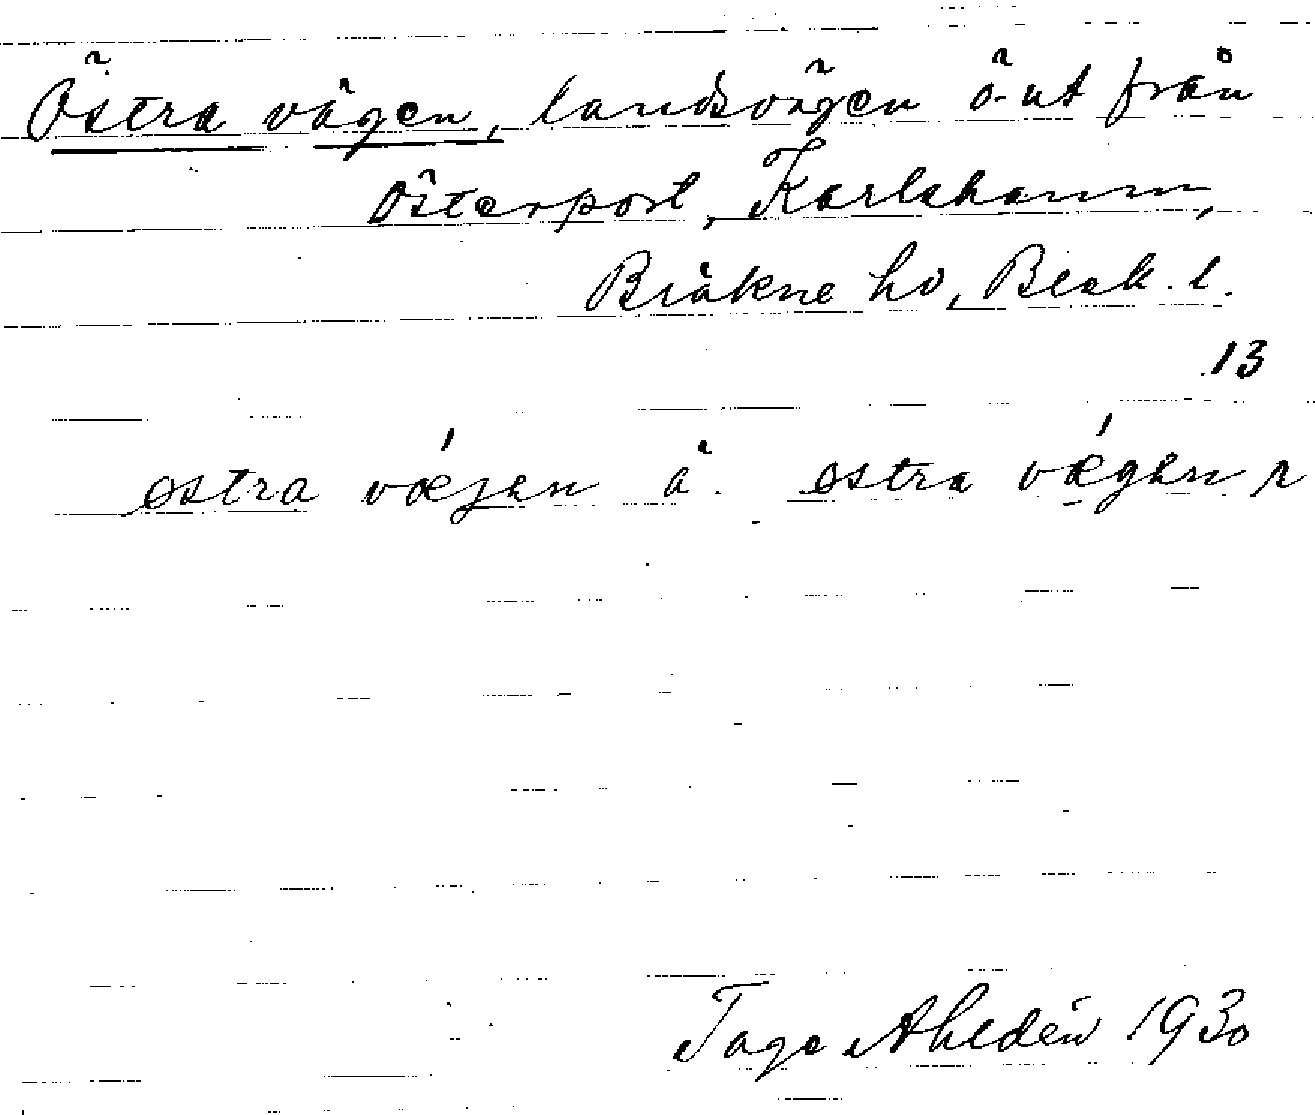 Östra vägen, landsvägen ö. ut från
Österport, Karlshamn,
Bräkne hd, Blek. l.
13
østra væjen ä. østra vægen r
Tage Ahldén 1930